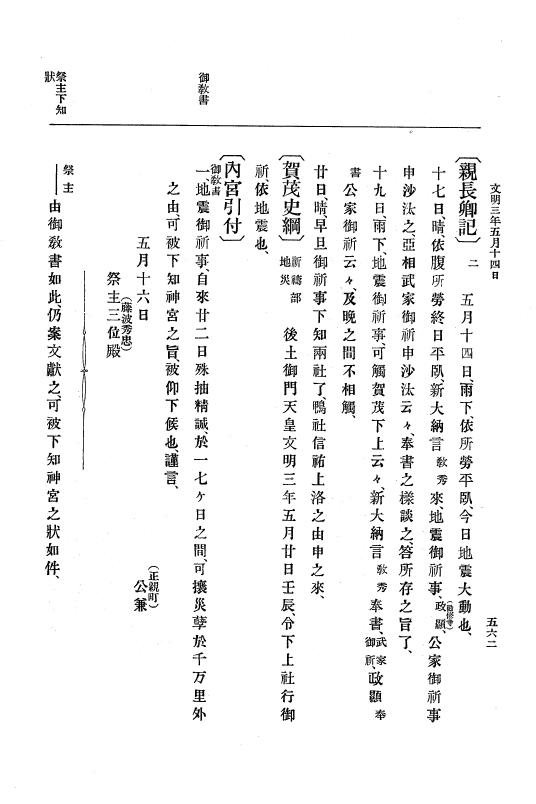 文明三年五月十四日
五六二
〔親長卿記〕二 五月十四日、雨下、依所勞平臥、今日地震大動也、
十七日、晴、依腹所勞終日平臥、新大納言敎秀來、地震御祈事、政顯、公家御祈事
申沙汰之、亞相武家御祈申沙汰云々、奉書之樣談之、答所存之旨了、
十九日、雨下、地震御祈事、可觸賀茂下上云々、新大納言敎秀奉書、武家御祈、政顯奉
書公家御祈云々、及晚之間不相觸、
廿日晴、早旦御祈事下知兩社了、鴨社信祐上洛之由申之來、
〔賀茂史綱〕祈禱部地災 後土御門天皇文明三年五月廿日壬辰、令下上社行御
祈、依地震也、
〔內宮引付〕
御敎書
御敎書
一、地震御祈事、自來廿二日殊抽精誠、於一七ケ日之間、可攘災孽於千万里外
之由、可被下知神宮之旨、被仰下候也、謹言、
五月十六日
(正親町)
公兼
(藤波秀忠)
祭主三位殿
祭主下知狀
祭主
由御敎書如此、仍案文獻之、可被下知神宮之狀如件、